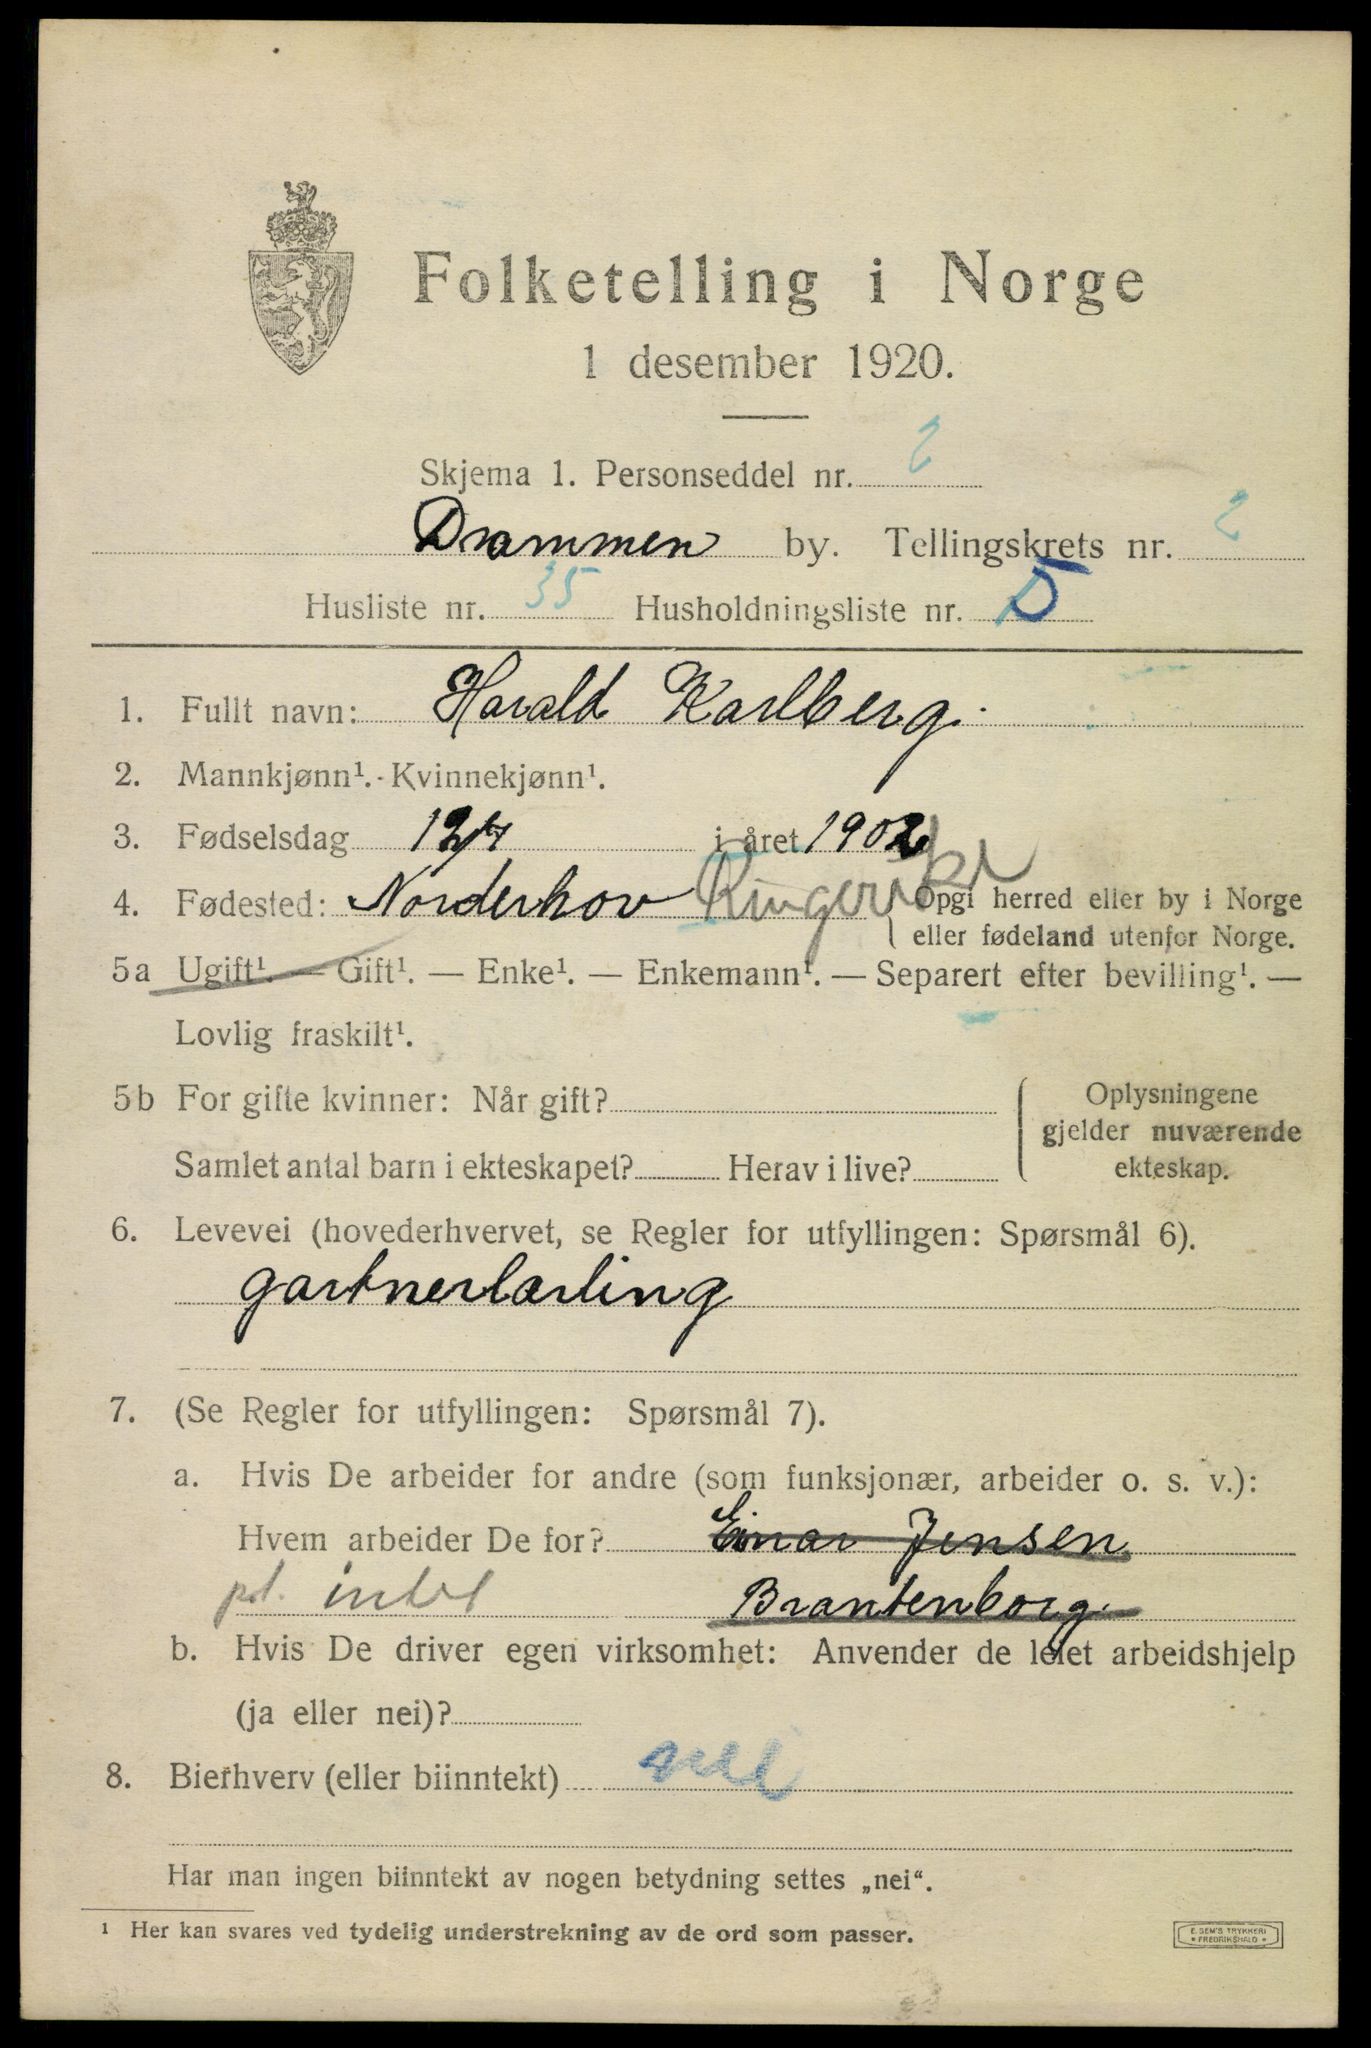 Folketelling i Norge
1 desember 1920.
Skjema 1. Personseddel nr. 2
Drammen by. Tellingskrets nr. 2
Husliste nr. 35 Husholdningsliste nr. D
1. Fullt navn: Harald Karlberg.
2. Mannkjønn¹. - Kvinnekjønn¹.
3. Fødselsdag 12/7 i året 1902
4. Fødested: Norderhov Ringerike Opgi herred eller by i Norge
eller fødeland utenfor Norge.
5a Ugift¹. — Gift¹. — Enke¹. — Enkemann¹. — Separert efter bevilling¹. —
Lovlig fraskilt¹.
5b For gifte kvinner: Når gift?
Samlet antal barn i ekteskapet? Herav i live?
Oplysningene
gjelder nuværende
ekteskap.
6. Levevei (hovederhvervet, se Regler for utfyllingen: Spørsmål 6).
gartnerlærling
7. (Se Regler for utfyllingen: Spørsmål 7).
a. Hvis De arbeider for andre (som funksjonær, arbeider o. s. v.):
Hvem arbeider De for? Einar Jensen
intet Brantenborg.
b. Hvis De driver egen virksomhet: Anvender de leiet arbeidshjelp
(ja eller nei)?
8. Bierhverv (eller biinntekt)
Har man ingen biinntekt av nogen betydning settes „nei“.
¹ Her kan svares ved tydelig understrekning av de ord som passer.
E. SEM'S TRYKKERI
* FREDRIKSHALD *